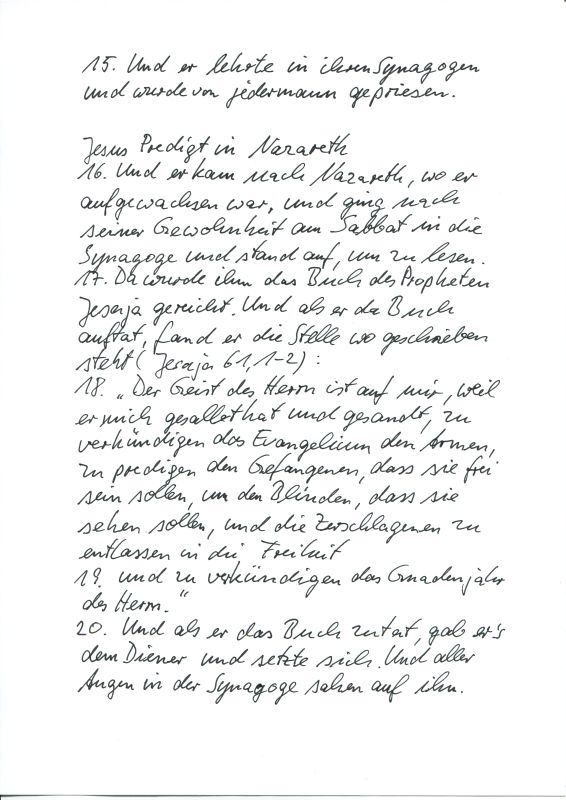 15. Und er lehrte in ihren Synagogen
und wurde von jedermann gepriesen.
Jesus Predigt in Nazareth
16. Und er kam nach Nazareth, wo er
aufgewachsen war, und ging nach
seiner Gewohnheit am Sabbat in die
Synagoge und stand auf, um zu lesen.
17. Da wurde ihm das Buch des Propheten
Jesaja gereicht. Und als er da Buch
auftat, fand er die Stelle wo geschrieben
steht (Jesaja 61,1-2):
18. „Der Geist des Herrn ist auf mir, weil
er mich gesalbet hat und gesandt, zu
verkündigen das Evangelium den Armen,
zu predigen den Gefangenen, dass sie frei
sein sollen, un den Blinden, dass sie
sehen sollen, und die Zerschlagenen zu
entlassen in die Freiheit
19. und zu verkündigen das Gnadenjahr
des Herrn."
20. Und als er das Buch zutat, gab er's
dem Diener und setzte sich. Und aller
Augen in der Synagoge sahen auf ihn.